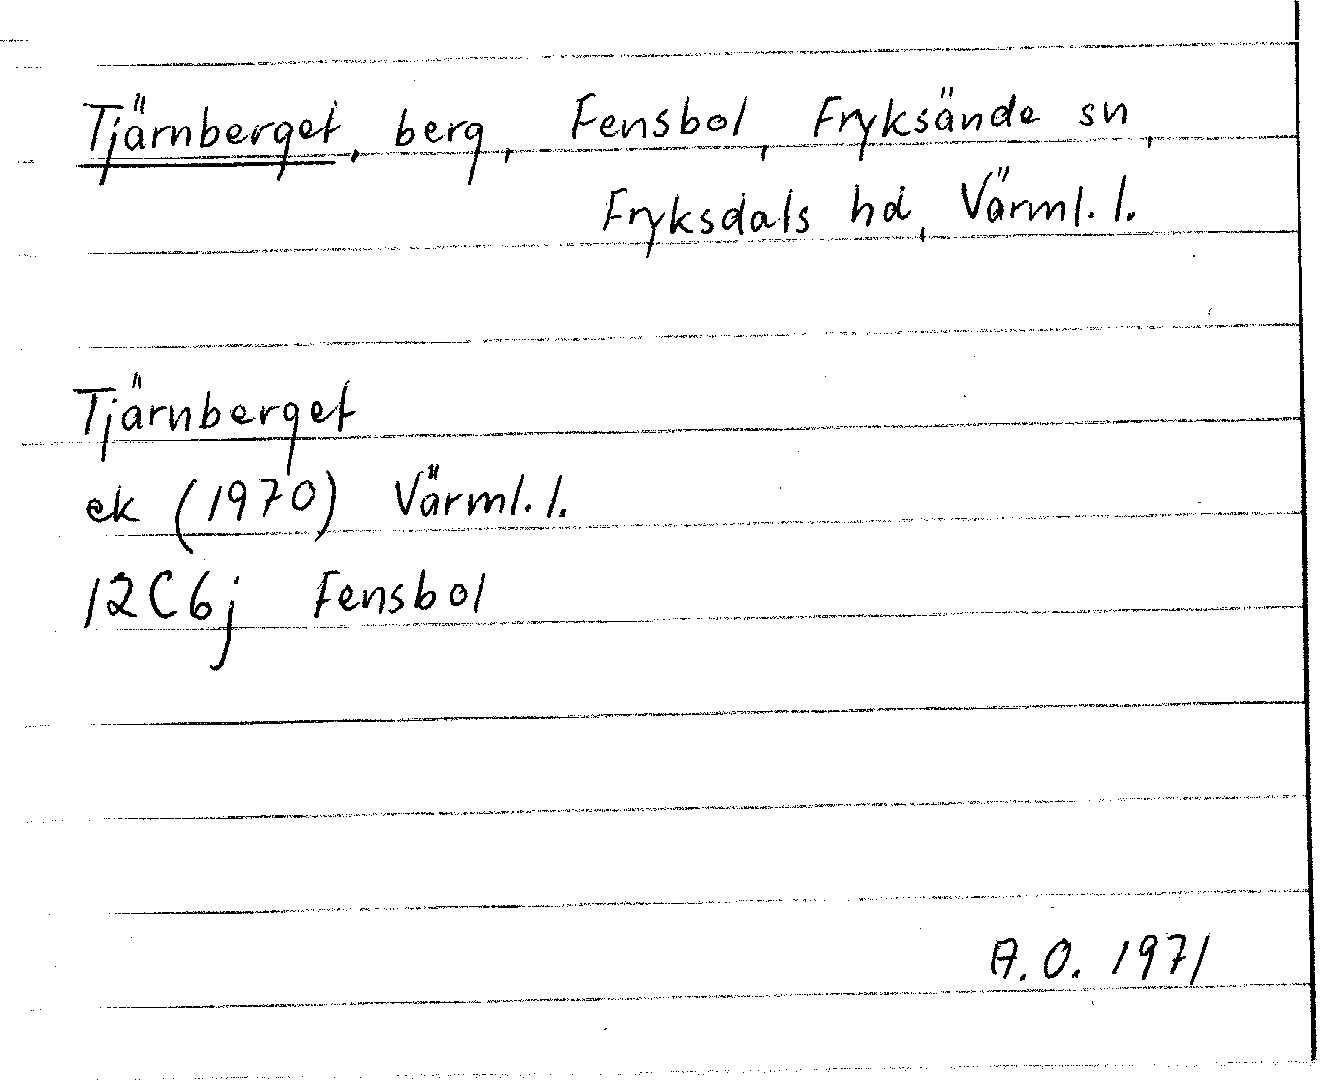 Tjärnberget, berg, Fensbol, Fryksände sn,
Fryksdals hd, Värml. l.
Tjärnberget
ek (1970) Värml. l.
12C6j Fensbol
A.O. 1971